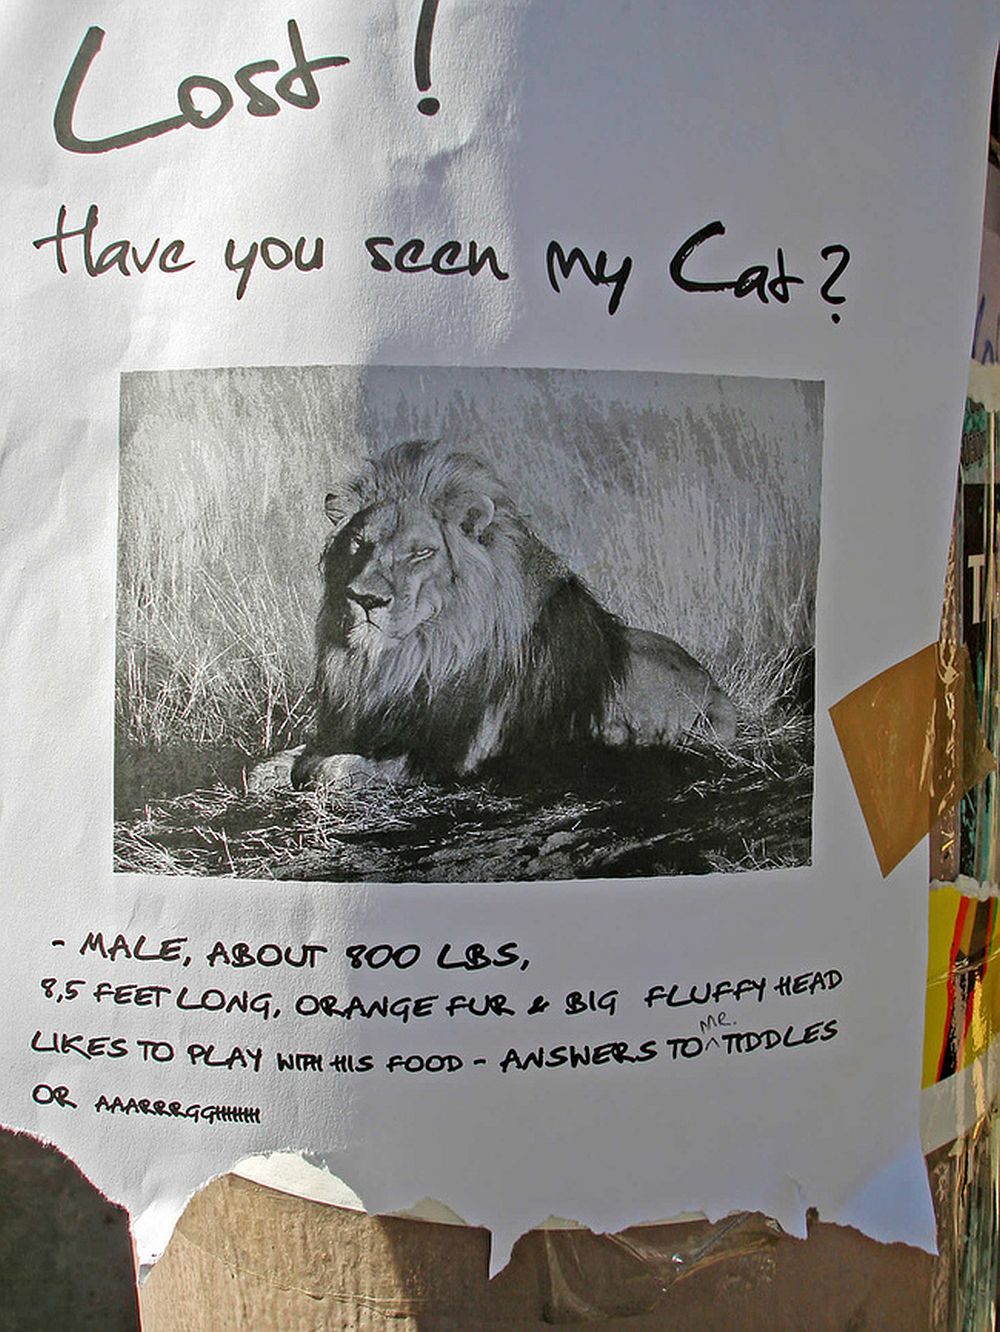 Lost!
Have you seen my Cat?
- MALE, ABOUT 800 LBS,
8,5 FEET LONG, ORANGE FUR & BIG FLUFFY HEAD
LIKES TO PLAY WITH HIS FOOD - ANSWERS TO MR. TIDDLES
OR AAARRRGGHHHHH